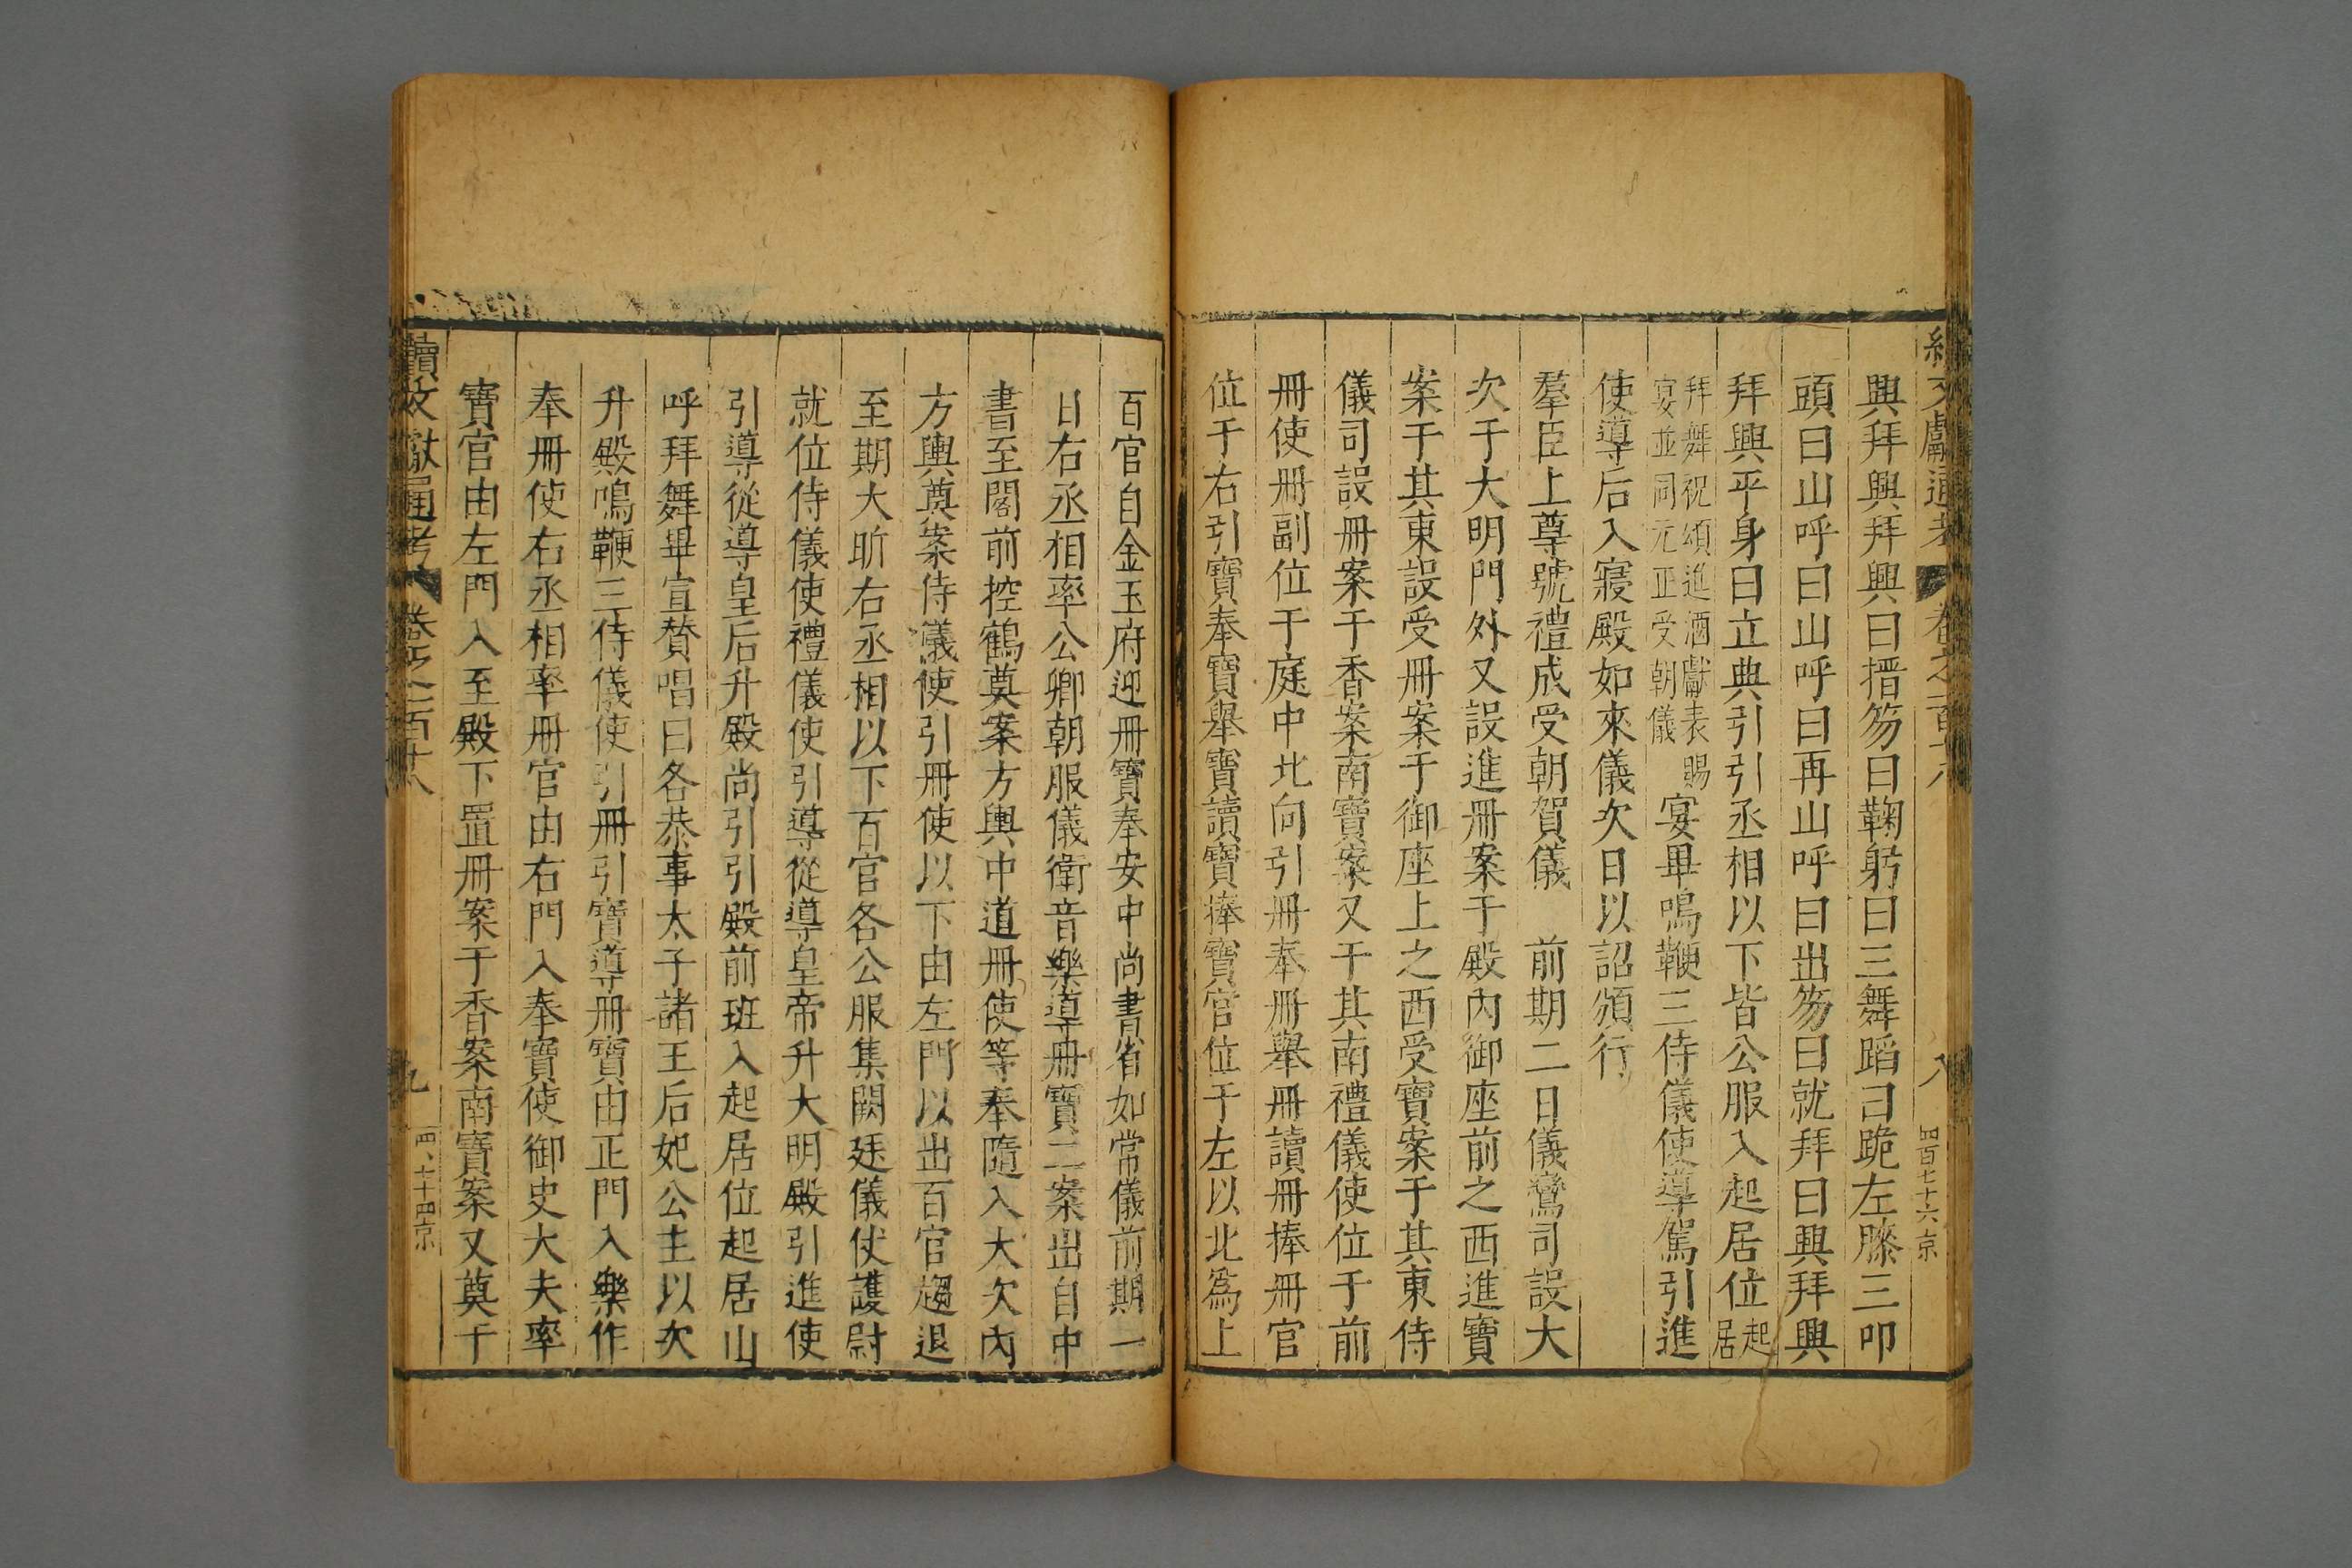 續文獻通考 卷之一百十八 八 四百七十六 京
興拜興拜興曰搢笏曰鞠躬曰三舞蹈曰跪左膝三叩
頭曰山呼曰山呼曰再山呼曰出笏曰就拜曰興拜興
拜興平身曰立典引引丞相以下皆公服入起居位起居
拜舞祝頌進酒獻表賜宴並同元正受朝儀宴畢鳴鞭三侍儀使導駕引進
使導后入寢殿如來儀次日以詔頒行
羣臣上尊號禮成受朝賀儀 前期二日儀鸞司設大
次于大明門外又設進冊案于殿內御座前之西進寶
案于其東設受冊案于御座上之西受寶案于其東侍
儀司設冊案于香案南寶案又于其南禮儀使位于前
冊使冊副位于庭中北向引冊奉冊舉冊讀冊捧冊官
位于右引寶奉寶舉寶讀寶捧寶官位于左以北爲上
百官自金玉府迎冊寶奉安中尚書省如常儀前期一
日右丞相率公卿朝服儀衛音樂導冊寶二案出自中
書至閣前控鶴奠案方輿中道冊使等奉隨入大次內
方輿奠案侍儀使引冊使以下由左門以出百官趨退
至期大昕右丞相以下百官各公服集闕廷儀仗護尉
就位侍儀使禮儀使引導從導皇帝升大明殿引進使
引導從導皇后升殿尚引引殿前班入起居位起居山
呼拜舞畢宣贊唱曰各恭事太子諸王后妃公主以次
升殿鳴鞭三侍儀使引冊引寶導冊寶由正門入樂作
奉冊使右丞相率冊官由右門入奉寶使御史大夫率
寶官由左門入至殿下置冊案于香案南寶案又奠于
續文獻通考 卷之一百十八 九 四 七十四 京